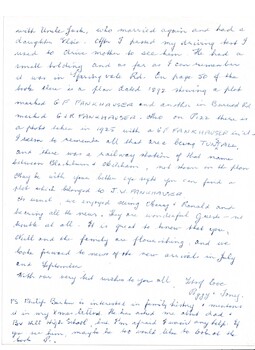 with Uncle Jack, who married again and had a
daughter Elsie. After I proved my driving test I
used to drive mother to see him. He had a
small holding and as far as I can remember
it was on Springvale Rd. On page 50 of the
book there is a plan dated 1892 showing a plot
marked G F PANKHAUSER and another in Barned Rd
marked G & R PANKHAUSER. Also on P122 there is
a photo taken in 1925 with a G F PANKHAUSER in it.
I seem to remember all that area being
and there was a railway station of that name
between Blackburn & Mitcham, not shown in the plan
Maybe with your better eye sight you can find a
plot which belonged to J. W. PANKHAUSER
So much, we enjoyed seeing & Ronald and
hearing all the news. They are wonderful guests - no
trouble at all. It is great to know that you,
and the family are flourishing, and we
look forward to news of the new arrivals in July
and September.
With our very best wishes to you all.
Love
Peggy & Tony.
PS. Philip Barker is interested in family history & mentioned
it in my Xmas letter. He has asked me about dad &
Box Hill High School, and I'm afraid I wasn't any help. If
you see him, maybe he too would like to look at the
book P.